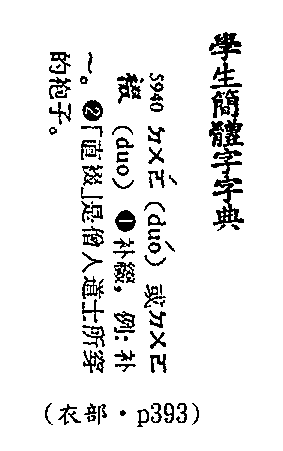 學生簡體字字典
5940 ㄉㄨㄛˊ (duó) 或ㄉㄨㄛ
裰 (duo) ❶补綴，例：补
～。❷「直裰」是僧人道士所穿
的袍子。
(衣部・p393)